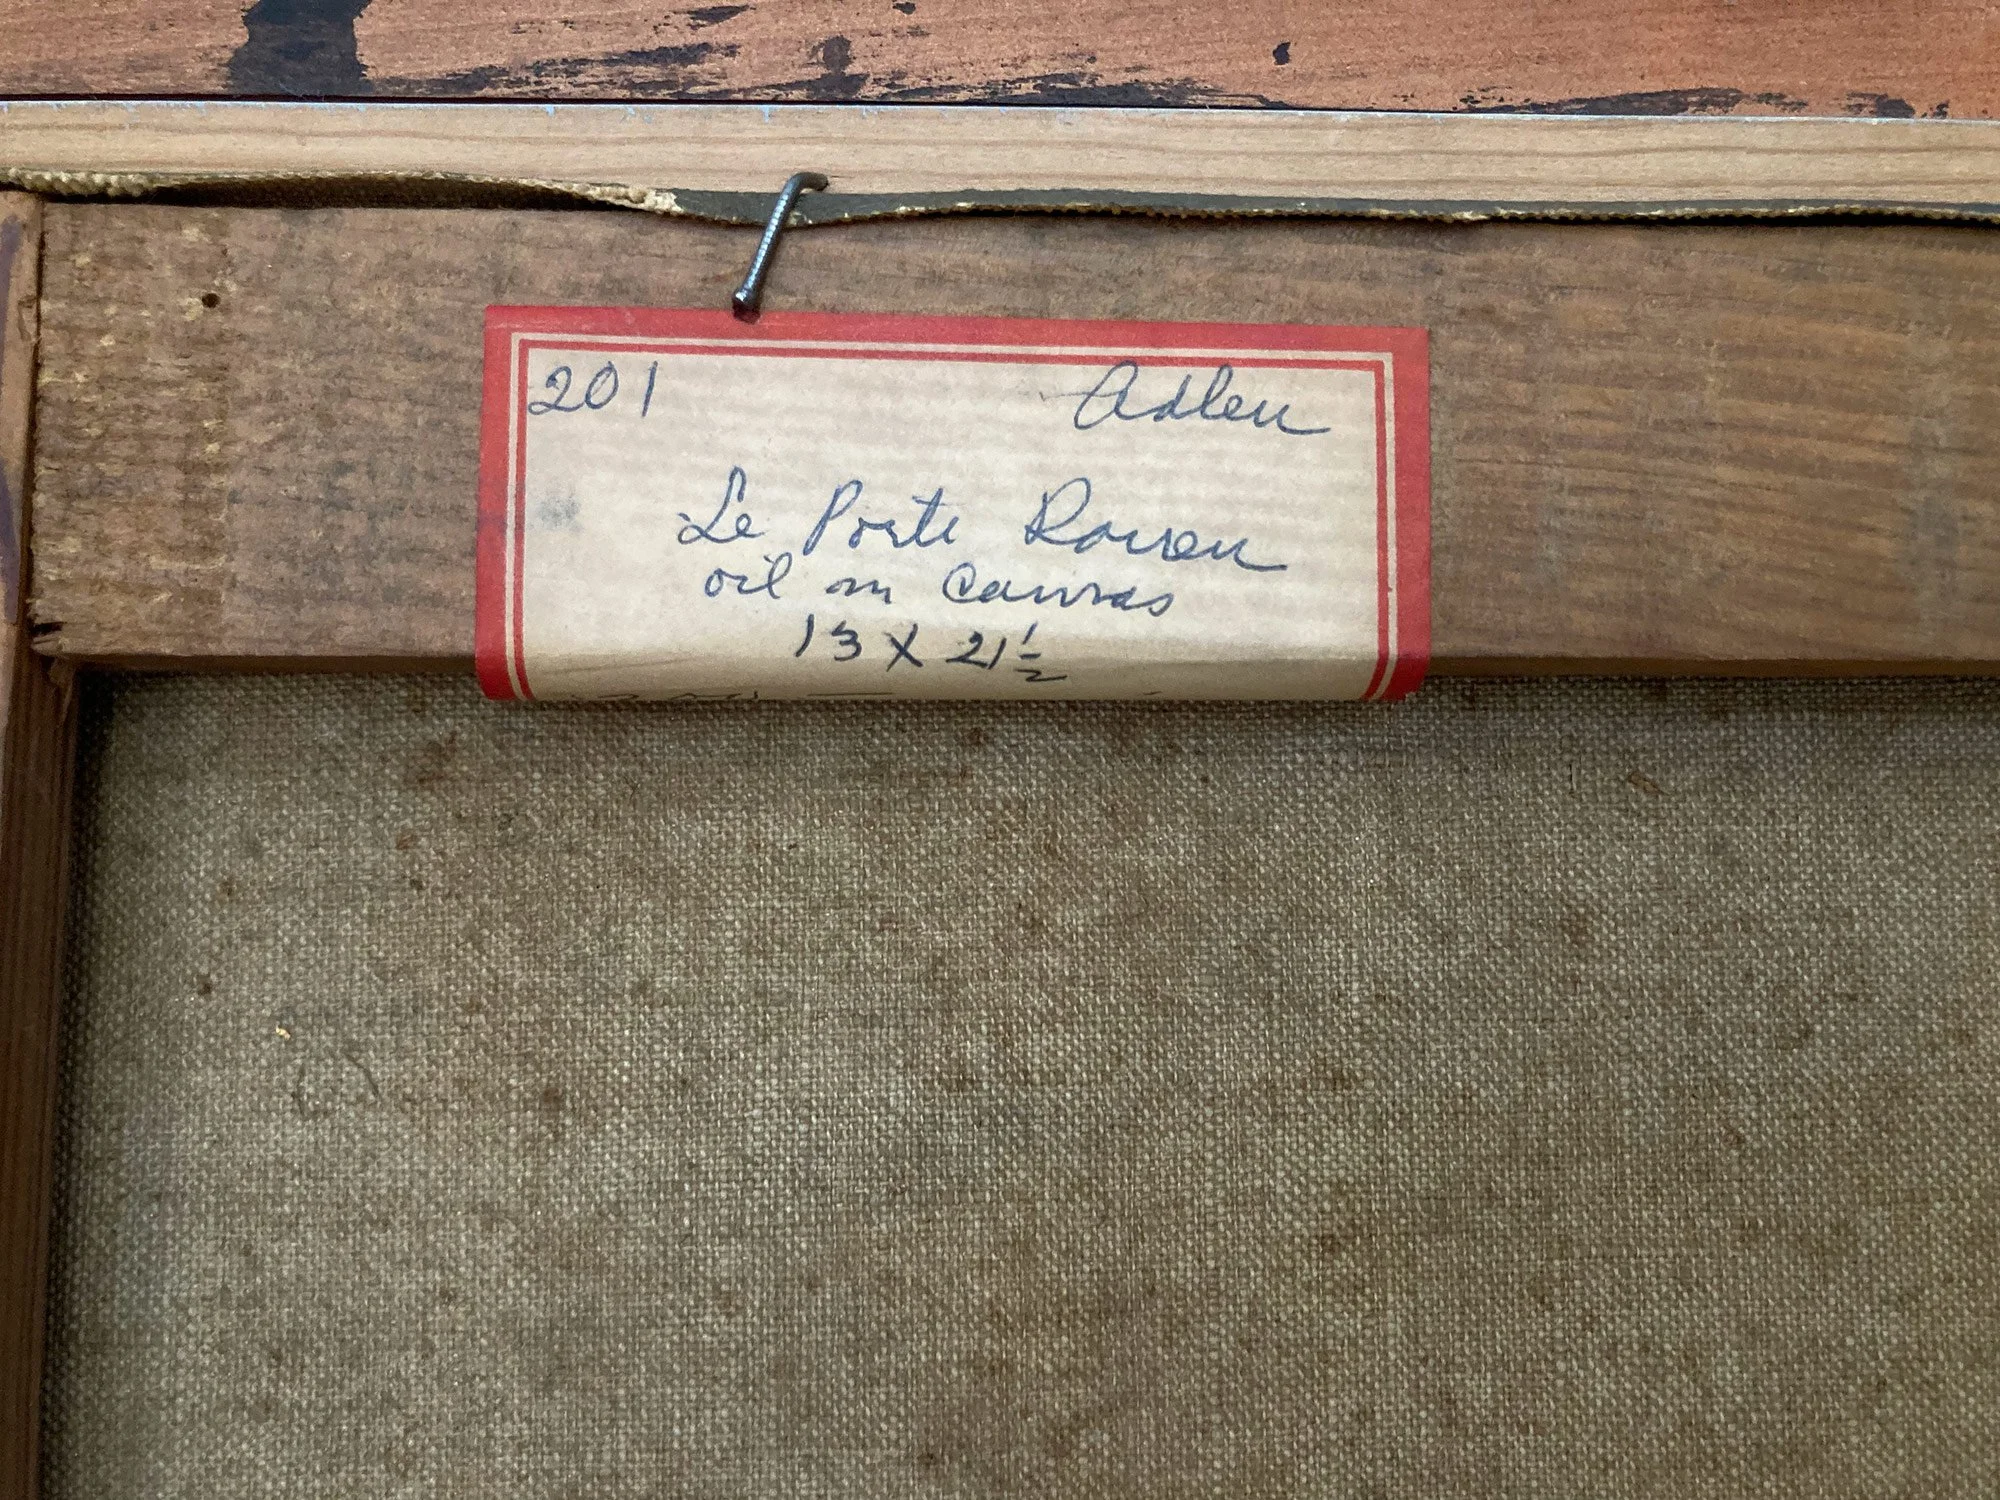 201 Adler
Le Porte Rouen
oil on Canvas
13 X 21 1/2